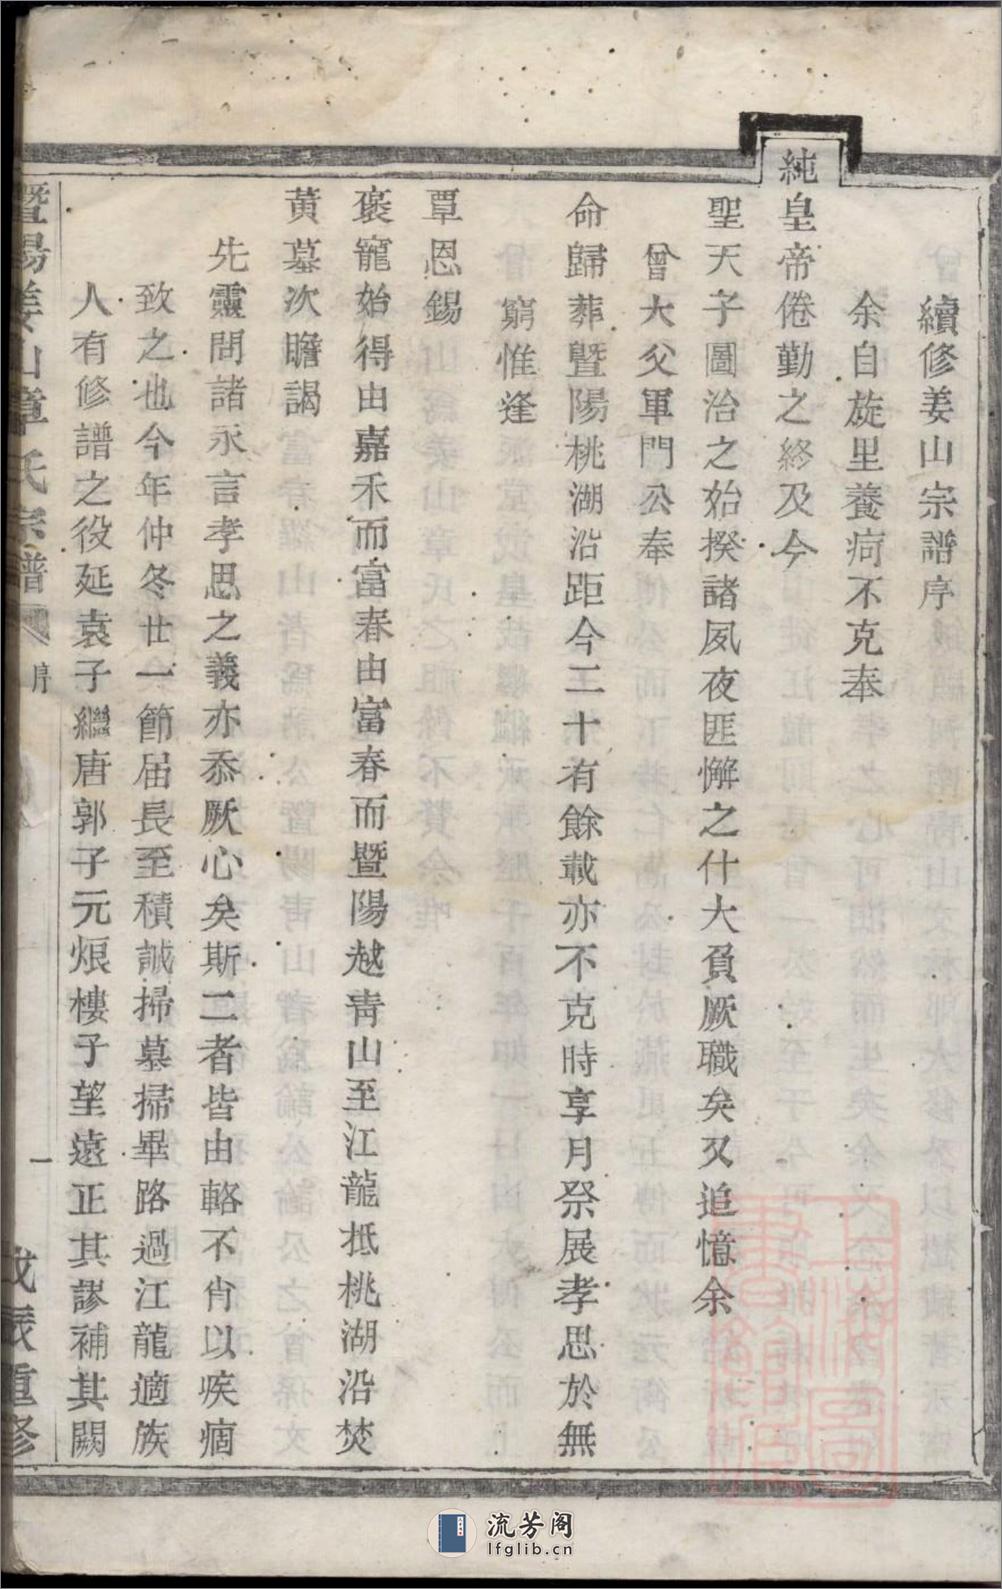 續修姜山宗譜序
余自旋里養疴不克奉
純皇帝倦勤之終及今
聖天子圖治之始揆諸夙夜匪懈之什大負厥職矣又追憶余
曾大父軍門公奉
命歸葬暨陽桃湖沿距今二十有餘載亦不克時享月祭展孝思於無
窮惟逢
覃恩錫
褒寵始得由嘉禾而富春由富春而暨陽越靑山至江龍抵桃湖沿焚
黃墓次瞻謁
先靈問諸永言孝思之義亦忝厥心矣斯二者皆由輅不肖以疾痼
致之也今年仲冬廿一節届長至積誠掃墓掃畢路過江龍適族
人有修譜之役延袁子繼唐郭子元烺樓子望遠正其謬補其闕
暨陽姜山章氏宗譜
序
一
戊辰重修
流芳阁
lfglib.cn